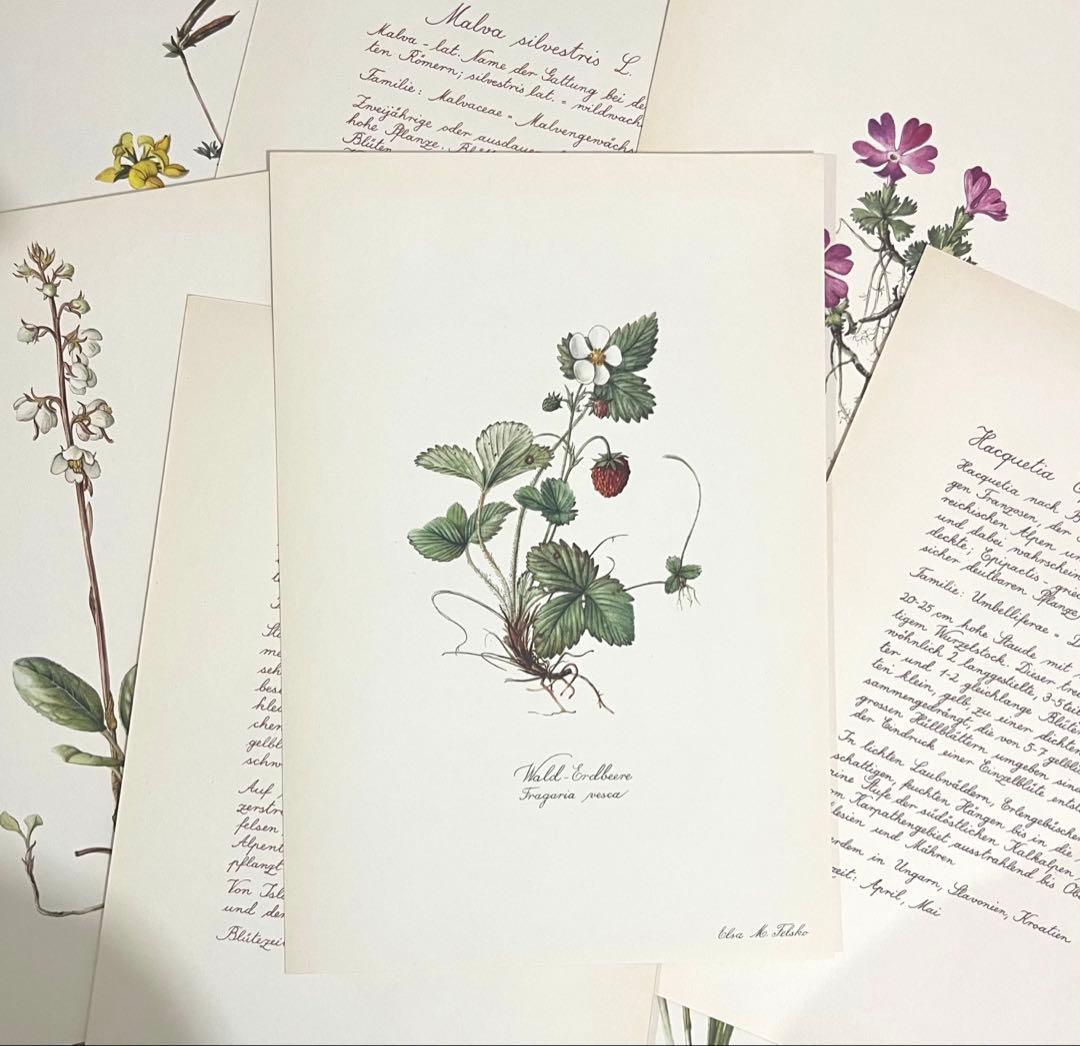 Malva silvestris L.
Malva - lat. Name der Gattung bei de
ten Römern; silvestris lat. = wildwach
Familie: Malvaceae = Malvengewächs
Zweijährige oder ausdaue
hohe Pflanze.
Blüten
Wald-Erdbeere
Fragaria vesca
Elsa M. Felsko
me
seh
bes
klei
cher
gelbl
schn
Auf
zerstr
felsen
Alpent
pflanzt
Von Isl
und der
Blütezei
Hacquetia
Hacquetia nach B
gen Franzosen, der
reichischen Alpen un
und dabei wahrschein
deckte; Epipactis - grie
sicher deutbaren Pflanze
Familie: Umbelliferae =
20-25 cm hohe Staude mit
tigem Wurzelstock. Dieser trei
wöhnlich 2 langgestielte, 3-5teil
ter und 1-2 gleichlange Blüte
ten klein, gelb, zu einer dichten
sammengedrängt, die von 5-7 gelbli
grossen Hüllblättern umgeben sind
der Eindruck einer Einzelblüte entst
In lichten Laubwäldern, Erlengebüsche
schattigen, feuchten Hängen bis in die
ine Stufe der südöstlichen Kalkalpen
m Karpathengebiet ausstrahlend bis Ob
lesien und Mähren
rdem in Ungarn, Slavonien, Kroatien
zeit: April, Mai